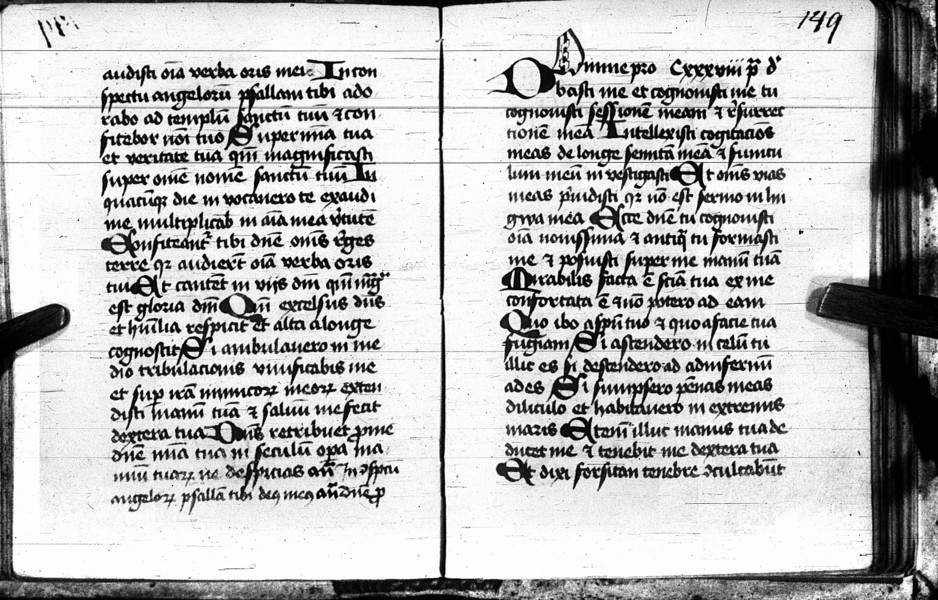 audisti oīa verba oris mei In con
spectu angelorū psallam tibi ado
rabo ad templū sanctū tuū ⁊ con
fitebor nōi tuo Super mīa tua
et veritate tua qm̄ magnificasti
super om̄e nomē sanctū tuū In
quacūqꝫ die invocavero te exaudi
me multiplicab in aīa mea v̓tutē
Confiteant᷑ tibi dn̄e om̄s r̓ges
terre qꝛ audierūt oīa verba oris
tui Et cantent in viis dn̄i qm̄ mg̅ᵃ
est gloria dn̄i Qm̄ excelsus dn̄s
et hūilia respicit et alta a longe
cognoscit Si ambulavero in me
dio tribulacionis vivificabis me
et suꝑ irā inimicoꝝ meoꝝ exten
disti manū tuā ⁊ salvū me fecit
dextera tua Dn̄s retribuet ꝓ me
dn̄e mīa tua in seculū opa ma
nuū tuaꝝ ne despicias an̄ In ↄspctu
angeloꝝ psallā tibi deꝰ meꝰ an̄ dn̄e ꝓ
149
Domine pro Cxxxviii p̄ dᵈ
Obasti me et cognovisti me tu
cognovisti sessionē meam ⁊ r̓surrec
tionē meā Intellexisti cogitacōs
meas de longe semitā meā ⁊ funicu
lum meū investigasti Et om̄s vias
meas p̓vidisti qꝛ nō est sermo in lin
gwa mea Ecce dn̄e tu cognovisti
oīa novissima ⁊ antiq̄ tu formasti
me ⁊ posuisti super me manū tuā
Mirabilis facta ē sciā tua ex me
confortata ē ⁊ nō potero ad eam
Quo ibo a spū tuo ⁊ quo a facie tua
fugiam Si ascendero in celū tu
illic es si descendero ad infernū
ades Si sumpsero pēnas meas
diliculo et habitavero in extremis
maris Eteni illuc manus tua de
ducet me ⁊ tenebit me dextera tua
Et dixi forsitan tenebre ↄculcabūt